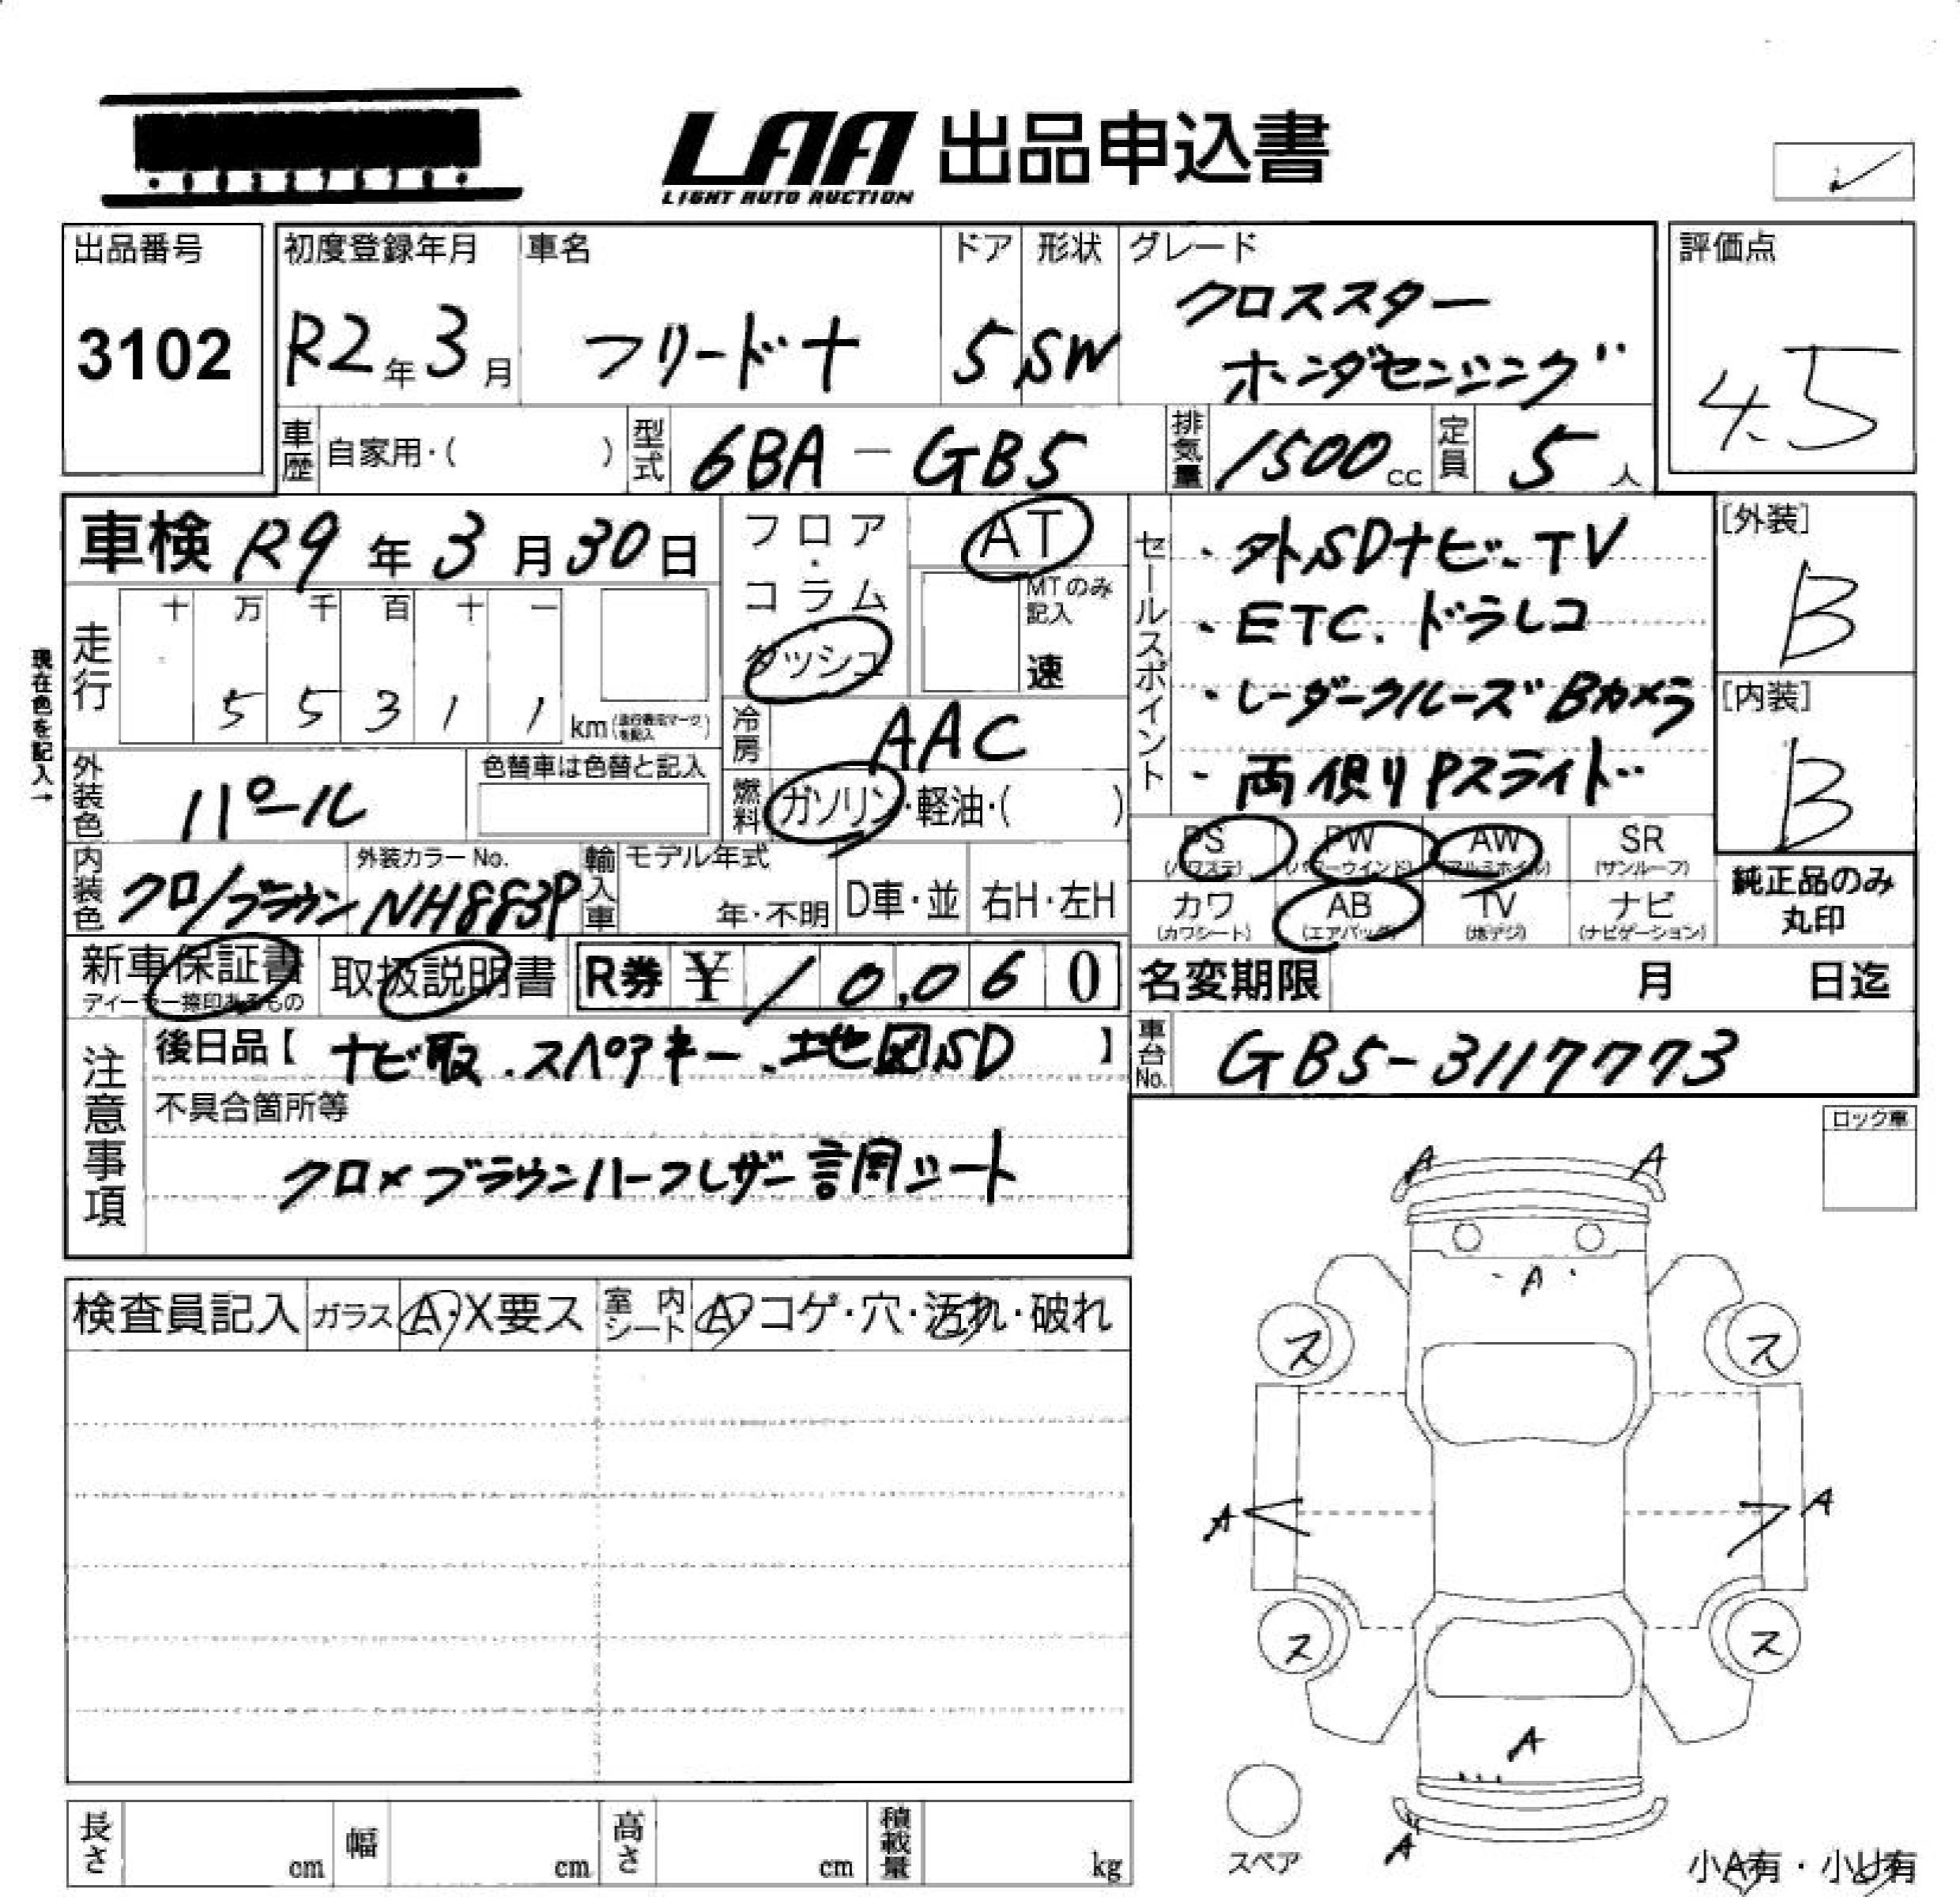 LAA 出品申込書
LIGHT AUTO AUCTION
出品番号
3102
初度登録年月
R2年3月
車名
フリード+
ドア
5
形状
SW
グレード
クロススター
ホンダセンシング
評価点
4.5
車歴 自家用・( )
型式 6BA-GB5
排気量 1500cc
定員 5人
車検 R9年3月30日
フロア・コラム
ダッシュ
AT
MTのみ記入
速
セールスポイント
・外SDナビ.TV
・ETC.ドラレコ
・レーダークルーズ Bカメラ
・両側りPスライド
[外装]
B
[内装]
B
現在色を記入→
走行
十 万 千 百 十 一
5 5 3 1 1 km(走行表示マークを記入)
冷房 AAC
外装色 パール
色替車は色替と記入
燃料 ガソリン・軽油・( )
PS (パワステ)
PW (パワーウインド)
AW (アルミホイル)
SR (サンルーフ)
カワ (カワシート)
AB (エアバッグ)
TV (地デジ)
ナビ (ナビゲーション)
純正品のみ
丸印
内装色 クロ/ブラウン
外装カラーNo.
NH883P
輸入車
モデル年式
年・不明
D車・並
右H・左H
新車保証書
ディーラー捺印あるもの
取扱説明書
R券 ¥ 10,060
名変期限 月 日迄
注意事項
後日品【 ナビ取.スペアキー.地図SD 】
車台No. GB5-3117773
不具合箇所等
クロ×ブラウンハーフレザー調シート
ロック車
A A
A
ス ス
A A
ス ス
A
A
検査員記入 ガラス A・X要ス
室内シート A・コゲ・穴・汚れ・破れ
長さ cm
幅 cm
高さ cm
積載量 kg
スペア
小A有・小U有